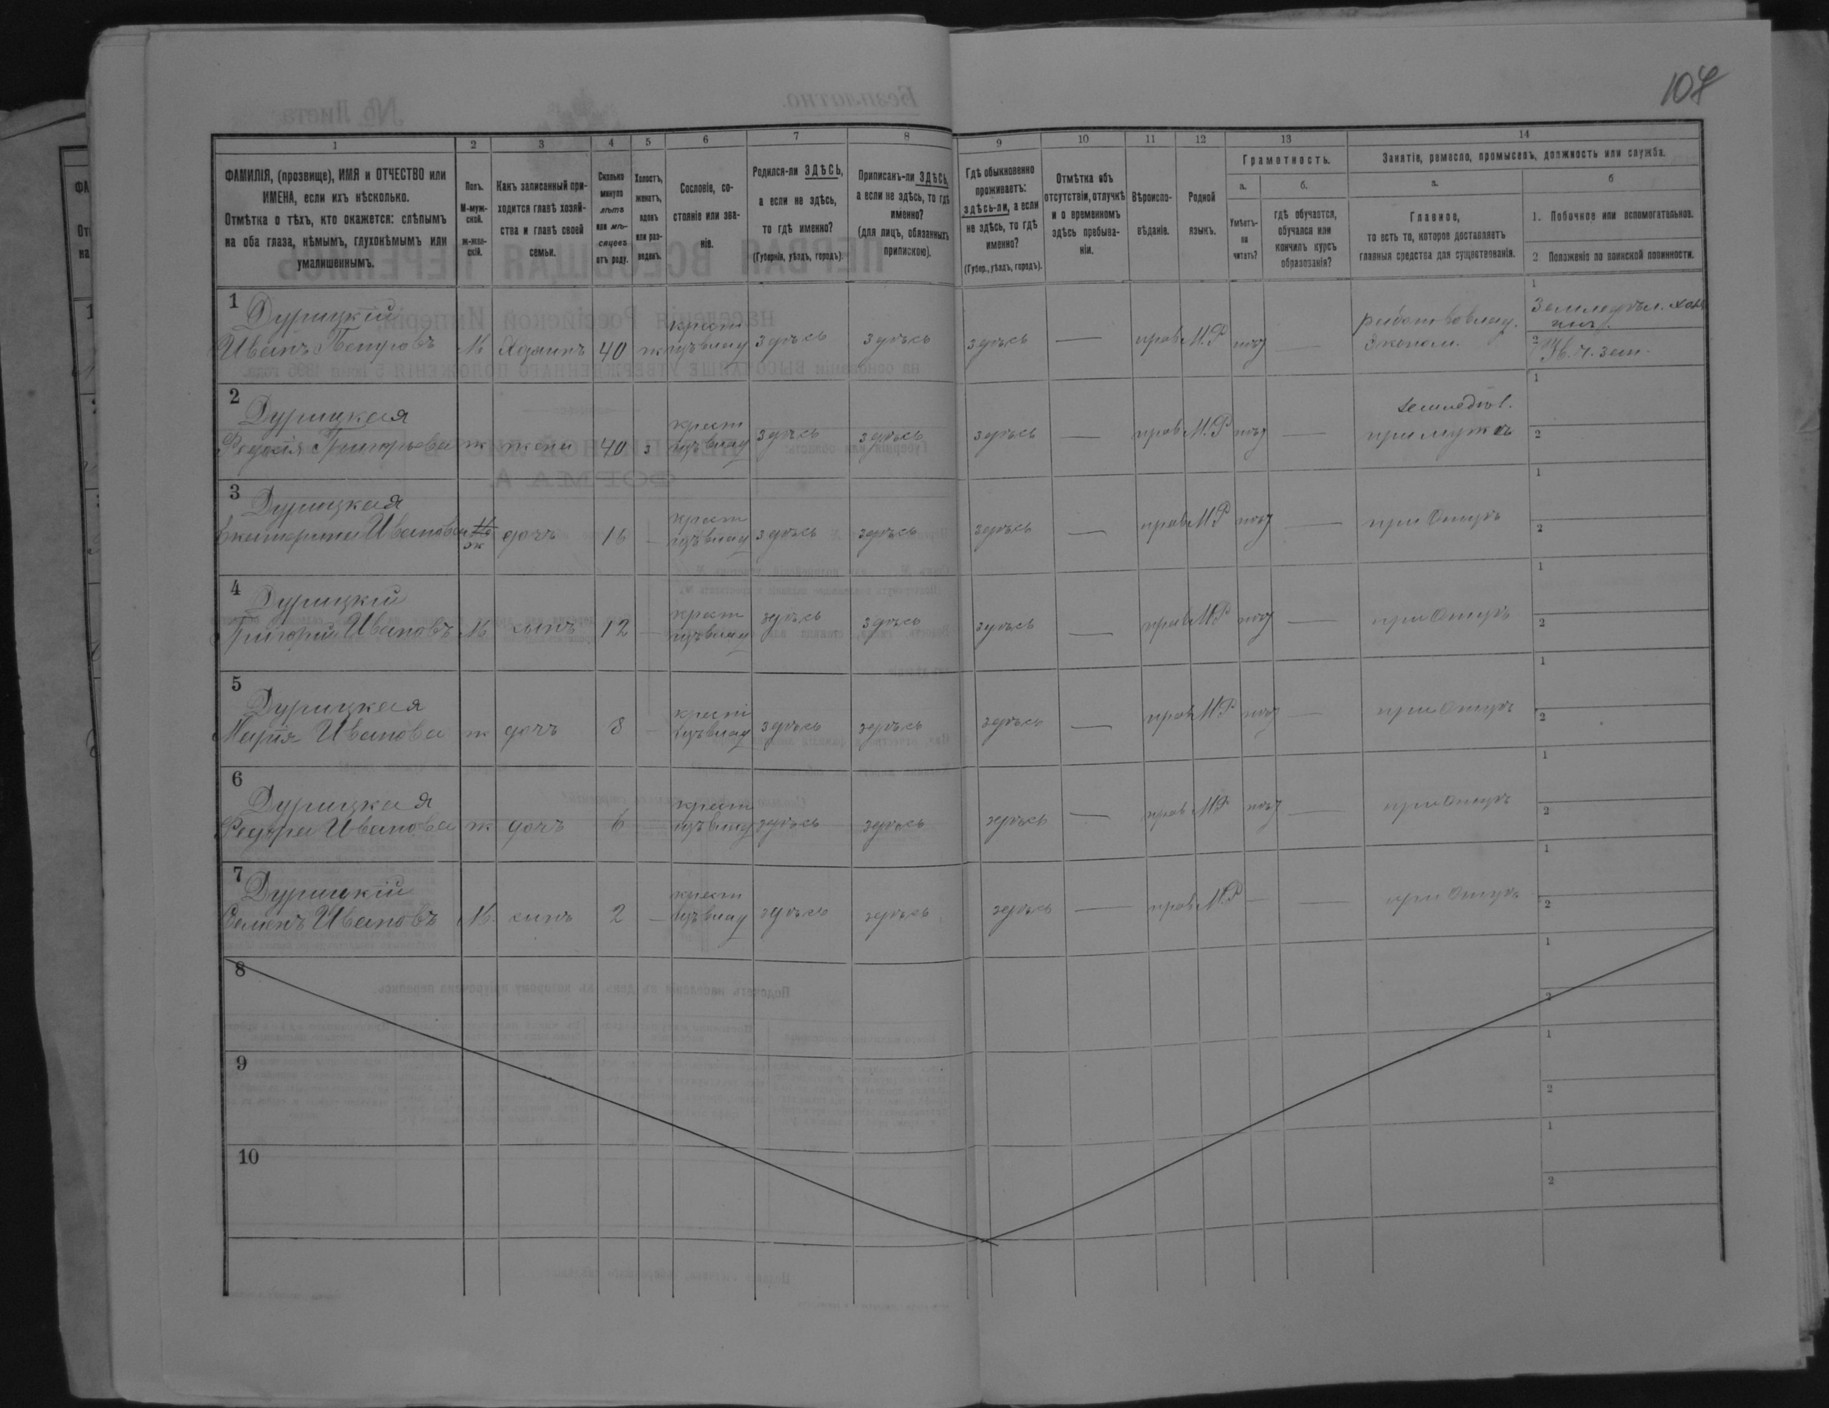 104
1 2 3 4 5 6 7 8 9 10 11 12 13 14
ФАМИЛІЯ, (прозвище), ИМЯ и ОТЧЕСТВО или
ИМЕНА, если ихъ нѣсколько.
Отмѣтка о тѣхъ, кто окажется: слѣпымъ
на оба глаза, нѣмымъ, глухонѣмымъ или
умалишеннымъ.
Полъ.
М-муж-
ской.
ж-жен-
скій.
Какъ записанный при-
ходится главѣ хозяй-
ства и главѣ своей
семьи.
Сколько
минуло
лѣтъ
или мѣ-
сяцевъ
отъ роду.
Холостъ,
женатъ,
вдовъ
или раз-
веденъ.
Сословіе, со-
стояніе или зва-
ніе.
Родился-ли ЗДѢСЬ,
а если не здѣсь,
то гдѣ именно?
(Губернія, уѣздъ, городъ).
Приписанъ-ли ЗДѢСЬ,
а если не здѣсь, то гдѣ
именно?
(для лицъ, обязанныхъ
припискою).
Гдѣ обыкновенно
проживаетъ:
здѣсь-ли, а если
не здѣсь, то гдѣ
именно?
(Губер., уѣздъ, городъ).
Отмѣтка объ
отсутствіи, отлучкѣ
и о временномъ
здѣсь пребыва-
ніи.
Вѣроиспо-
вѣданіе.
Родной
языкъ.
Грамотность.
а.
Умѣетъ-
ли
читать?
б.
гдѣ обучается,
обучался или
кончилъ курсъ
образованія?
Занятіе, ремесло, промыселъ, должность или служба.
а.
Главное,
то есть то, которое доставляетъ
главныя средства для существованія.
б
1. Побочное или вспомогательное.
2 Положеніе по воинской повинности.
1 Дурицкій
Иванъ Петровъ М Хозяинъ 40 ж крест здѣсь здѣсь здѣсь — прав М.Р нѣтъ —
2 Дурицкая
Григорьева ж жена 40 з крест здѣсь здѣсь здѣсь — прав М.Р нѣтъ — при мужѣ
3 Дурицкая
Екатерина Иванова ж дочь 16 — крест здѣсь здѣсь здѣсь — прав М.Р нѣтъ — при Отцѣ
4 Дурицкій
Григорій Ивановъ М. сынъ 12 — крест здѣсь здѣсь здѣсь — прав М.Р нѣтъ — при Отцѣ
5 Дурицкая
Марія Иванова ж дочь 8 — крест здѣсь здѣсь здѣсь — прав М.Р нѣтъ — при Отцѣ
6 Дурицкая
Иванова ж дочь 6 — крест здѣсь здѣсь здѣсь — прав М.Р нѣтъ — при Отцѣ
7 Дурицкій
Семенъ Ивановъ М. сынъ 2 — крест здѣсь здѣсь здѣсь — прав М.Р — — при Отцѣ
8
9
10